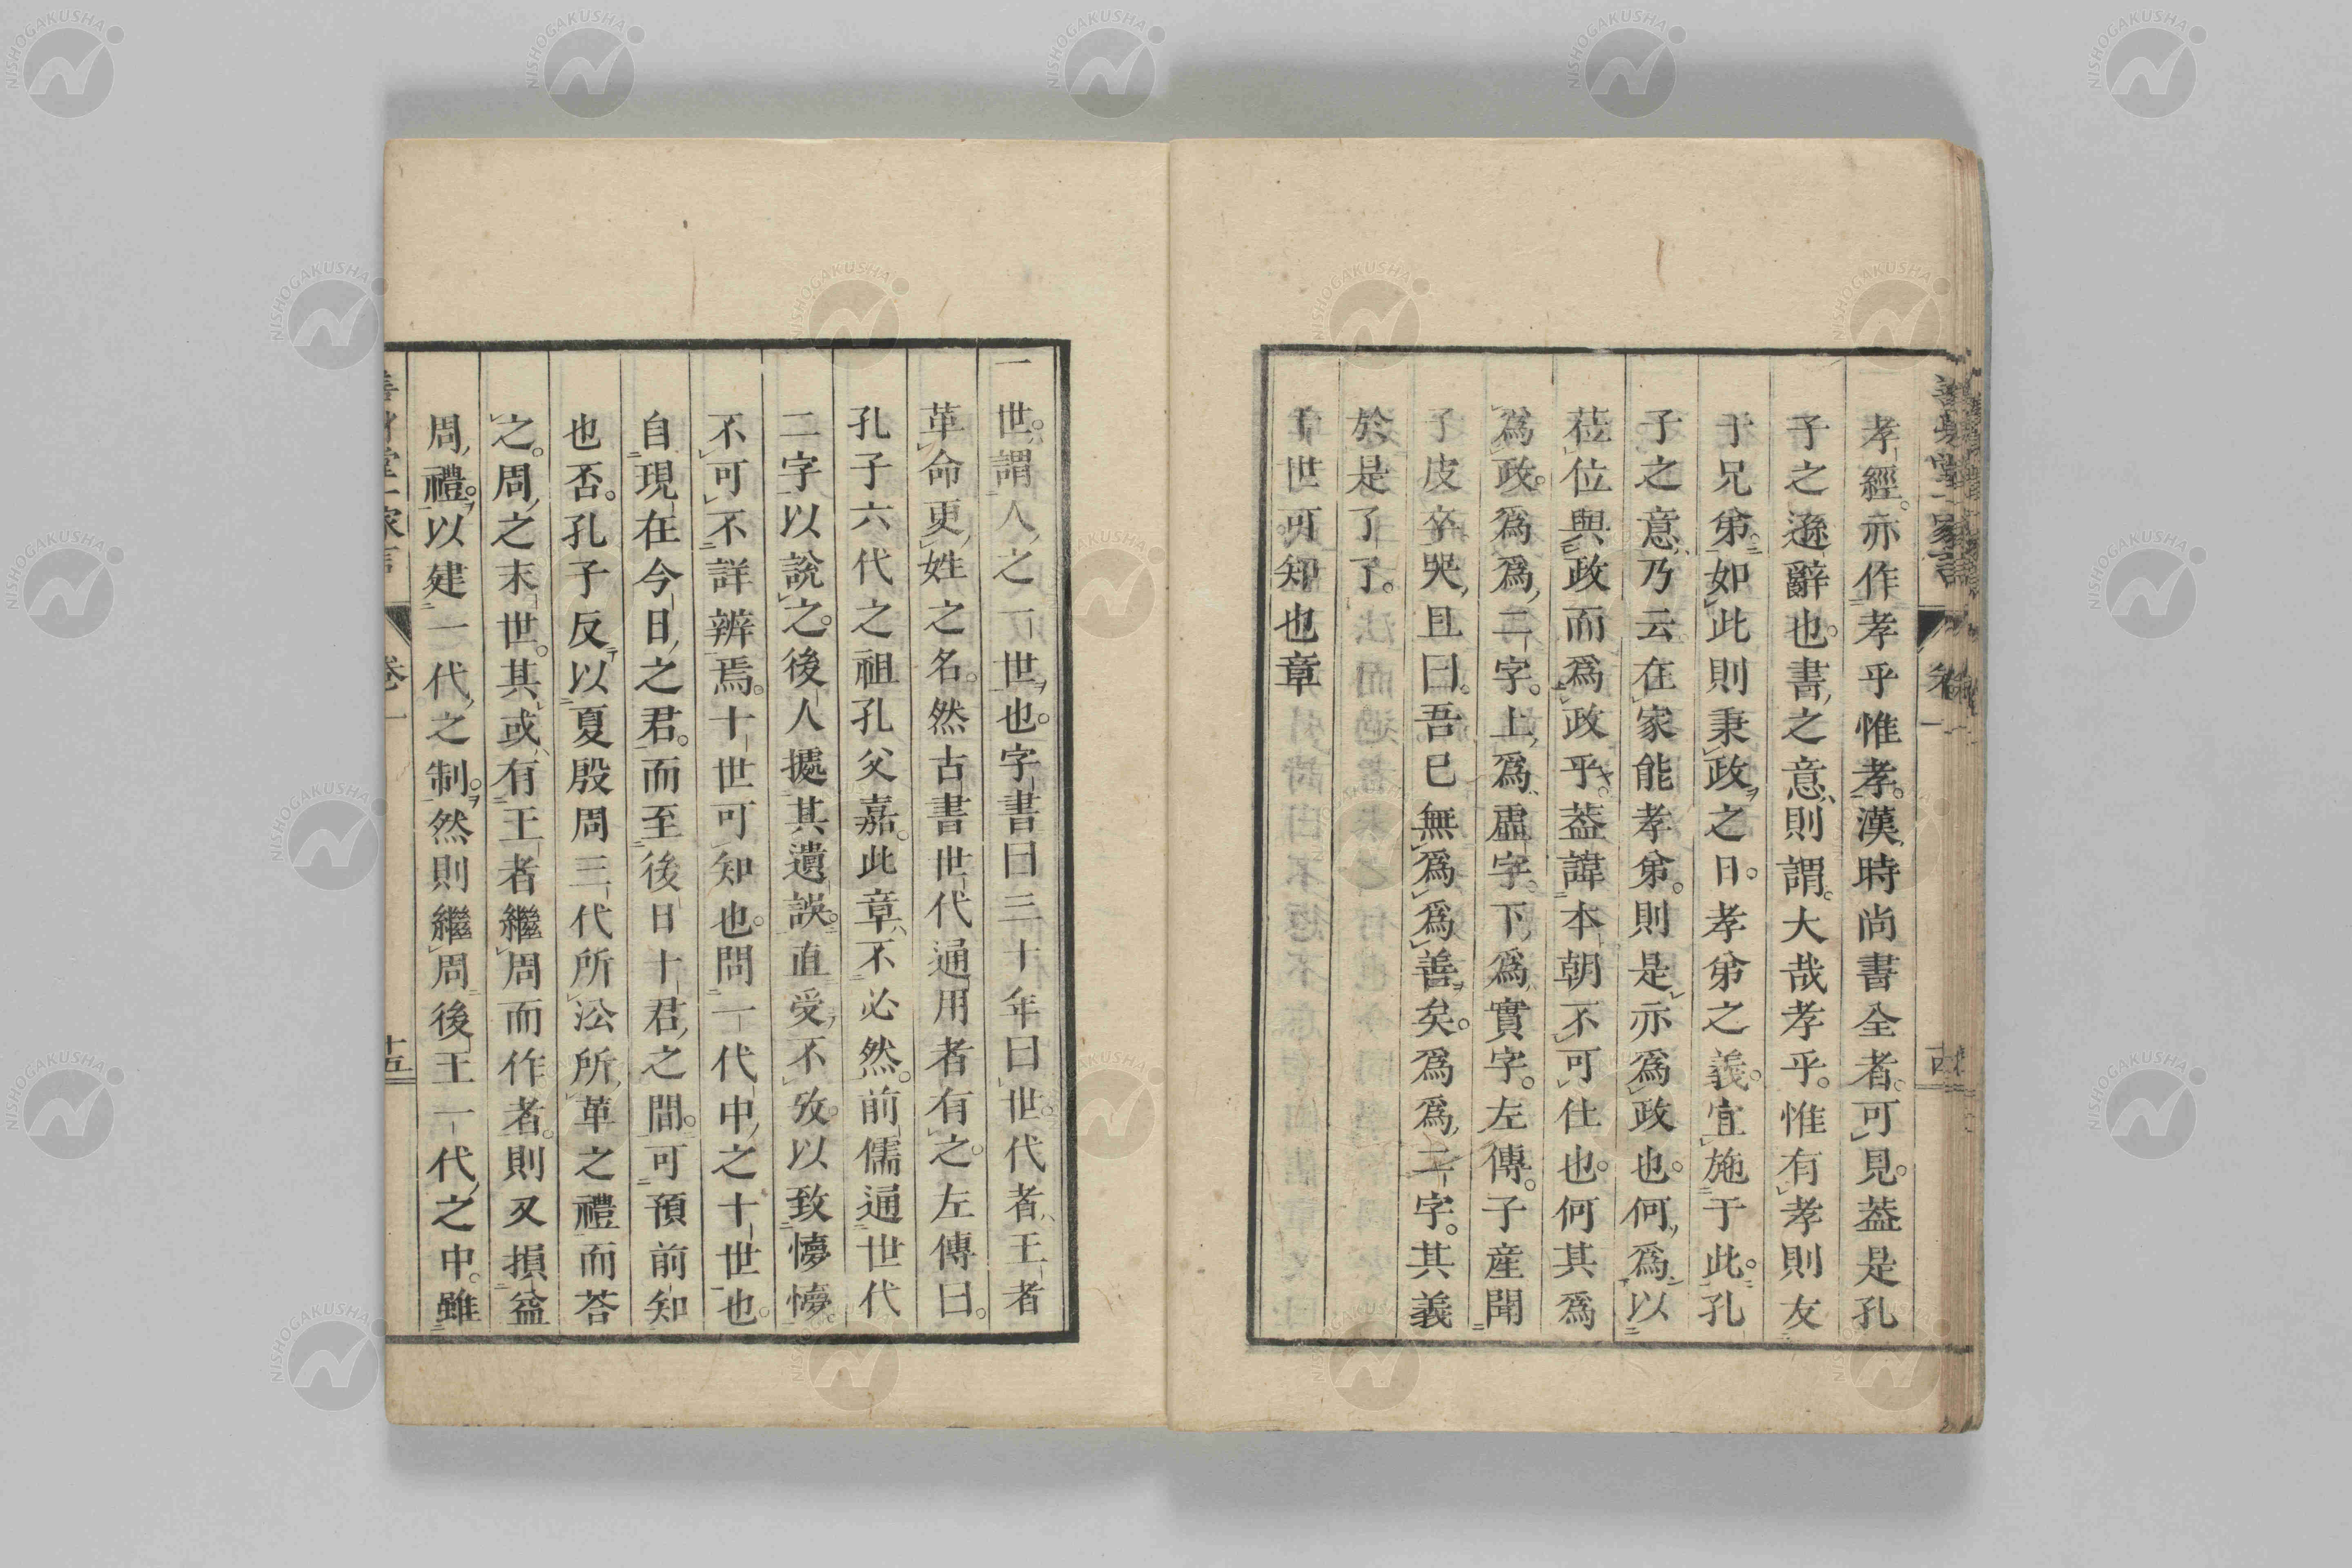 孝經。亦作孝乎惟孝。漢時尚書全者。可見。葢是孔
子之遜辭也。書之意則謂。大哉孝乎。惟有孝則友
于兄弟。如此則秉政之日。孝弟之義。宜施于此。孔
子之意乃云在家能孝弟。則是亦爲政也。何爲以
莅位與政而爲政乎。葢諱本朝不可仕也。何其爲
爲政。爲爲二字。上爲虛字。下爲實字。左傳。子產聞
子皮卒哭且曰。吾已無爲爲善矣。爲爲二字。其義
於是了了。
十世可知也章
一世。謂人之一世也。字書曰三十年曰世。世代者王者
革命更姓之名。然古書世代通用者有之。左傳曰。
孔子六代之祖孔父嘉。此章不必然。前儒通世代
二字以說之。後人據其遺誤。直受不攷。以致懜懜。
不可不詳辨焉。十世可知也。問一代中之十世也。
自現在今日之君。而至後日十君之間。可預前知
也否。孔子反以夏殷周三代所㳂所革之禮而荅
之。周之末世。其或有王者繼周而作者。則又損益
周禮。以建一代之制。然則繼周後王一代之中。雖
卷一
十五
NISHOGAKUSHA